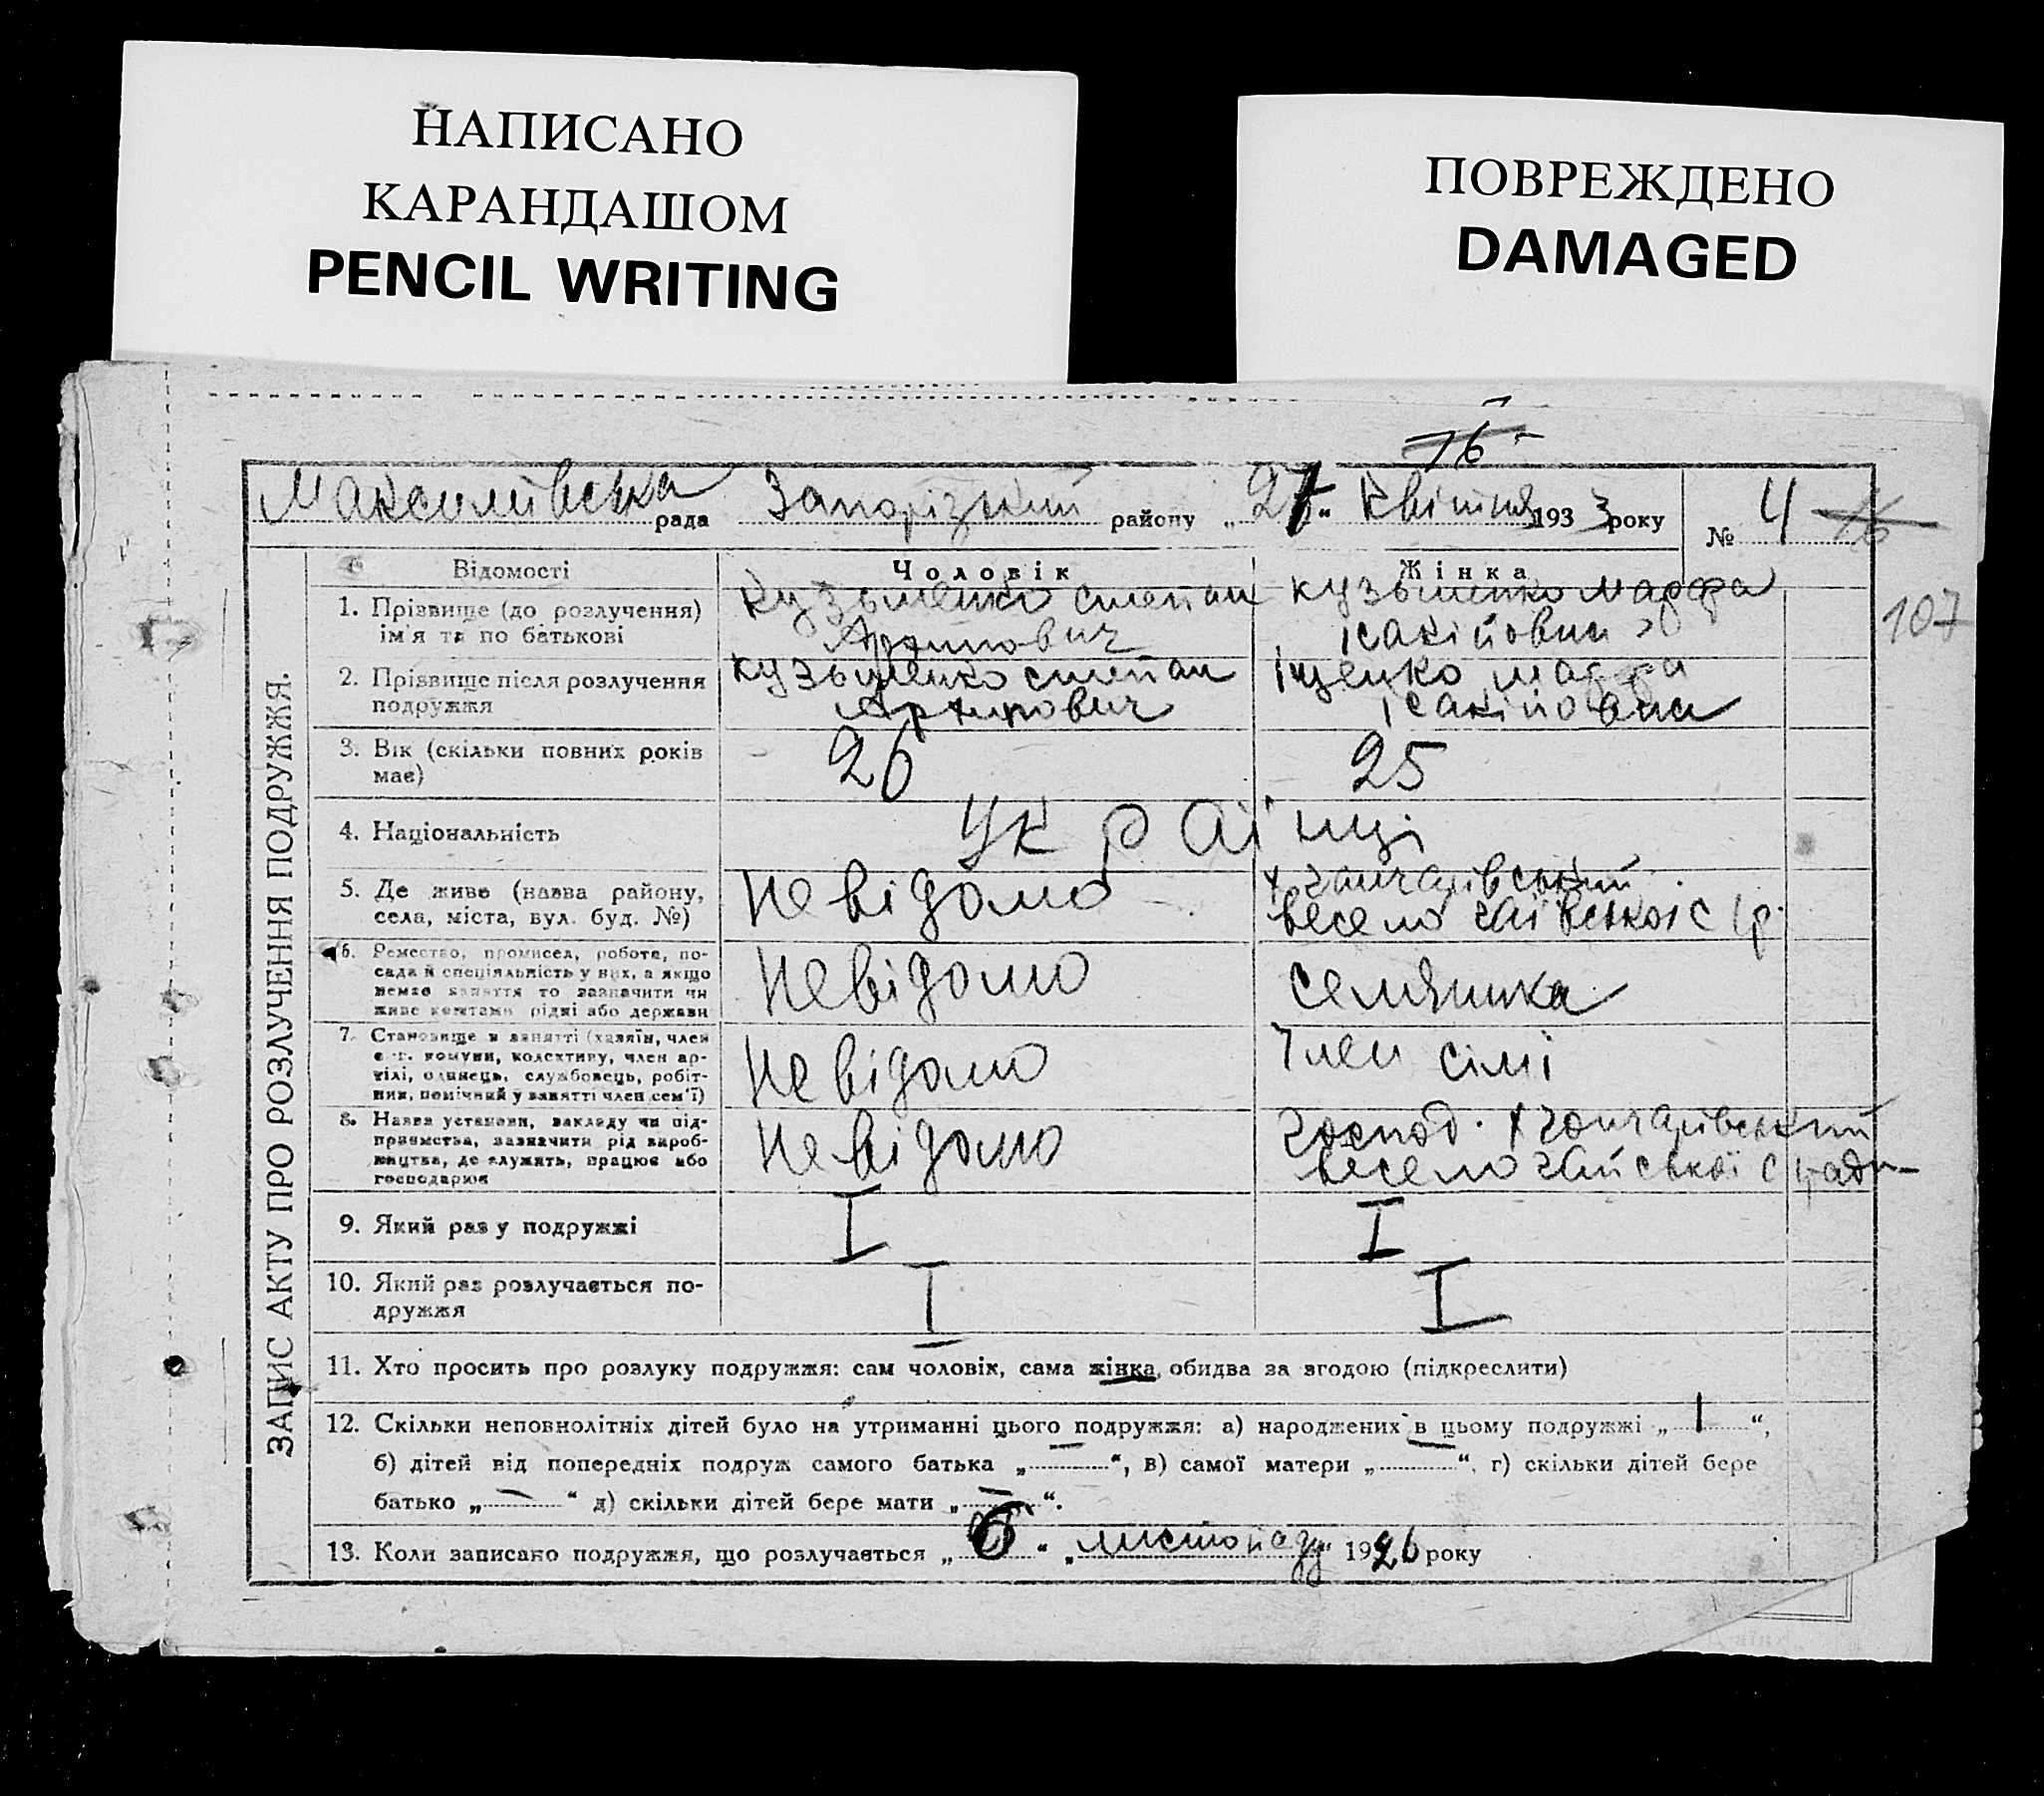 НАПИСАНО
КАРАНДАШОМ
PENCIL WRITING
ПОВРЕЖДЕНО
DAMAGED
16
рада Запорізький району „27“ квітня 1933 року № 4 16
107
ЗАПИС АКТУ ПРО РОЗЛУЧЕННЯ ПОДРУЖЖЯ.
Відомості Чоловік Жінка
1. Прізвище (до розлучення) Кузьменко Степан Кузьменко Марфа
ім'я та по батькові Архипович
2. Прізвище після розлучення Кузьменко Степан Іщенко Марфа
подружжя Архипович
3. Вік (скільки повних років 26 25
має)
4. Національність Українці
5. Де живе (назва району, Невідомо х гончарівський
села, міста, вул. буд. №) весело гаївської с/р.
6. Ремество, промисел, робота, по- Невідомо селянка
сада й спеціяльність у них, а якщо
немає заняття то зазначити чи
живе коштами рідні або держави
7. Становище в занятті (хазяїн, член Невідомо Член сімі
с.-г. комуни, колективу, член ар-
тілі, одинець, службовець, робіт-
ник, помічний у занятті член сем'ї)
8. Назва установи, закладу чи під- Невідомо господ. х гончарівський
приємства, зазначити рід вироб- весело гайської с ради
ництва, де служить, працює або
господарює
9. Який раз у подружжі I I
10. Який раз розлучається по- I I
дружжя
11. Хто просить про розлуку подружжя: сам чоловік, сама жінка, обидва за згодою (підкреслити)
12. Скільки неповнолітніх дітей було на утриманні цього подружжя: а) народжених в цьому подружжі „1“,
б) дітей від попередніх подруж самого батька „—“, в) самої матери „—“, г) скільки дітей бере
батько „—“ д) скільки дітей бере мати „—“.
13. Коли записано подружжя, що розлучається „6“ „листопаду“ 1926 року